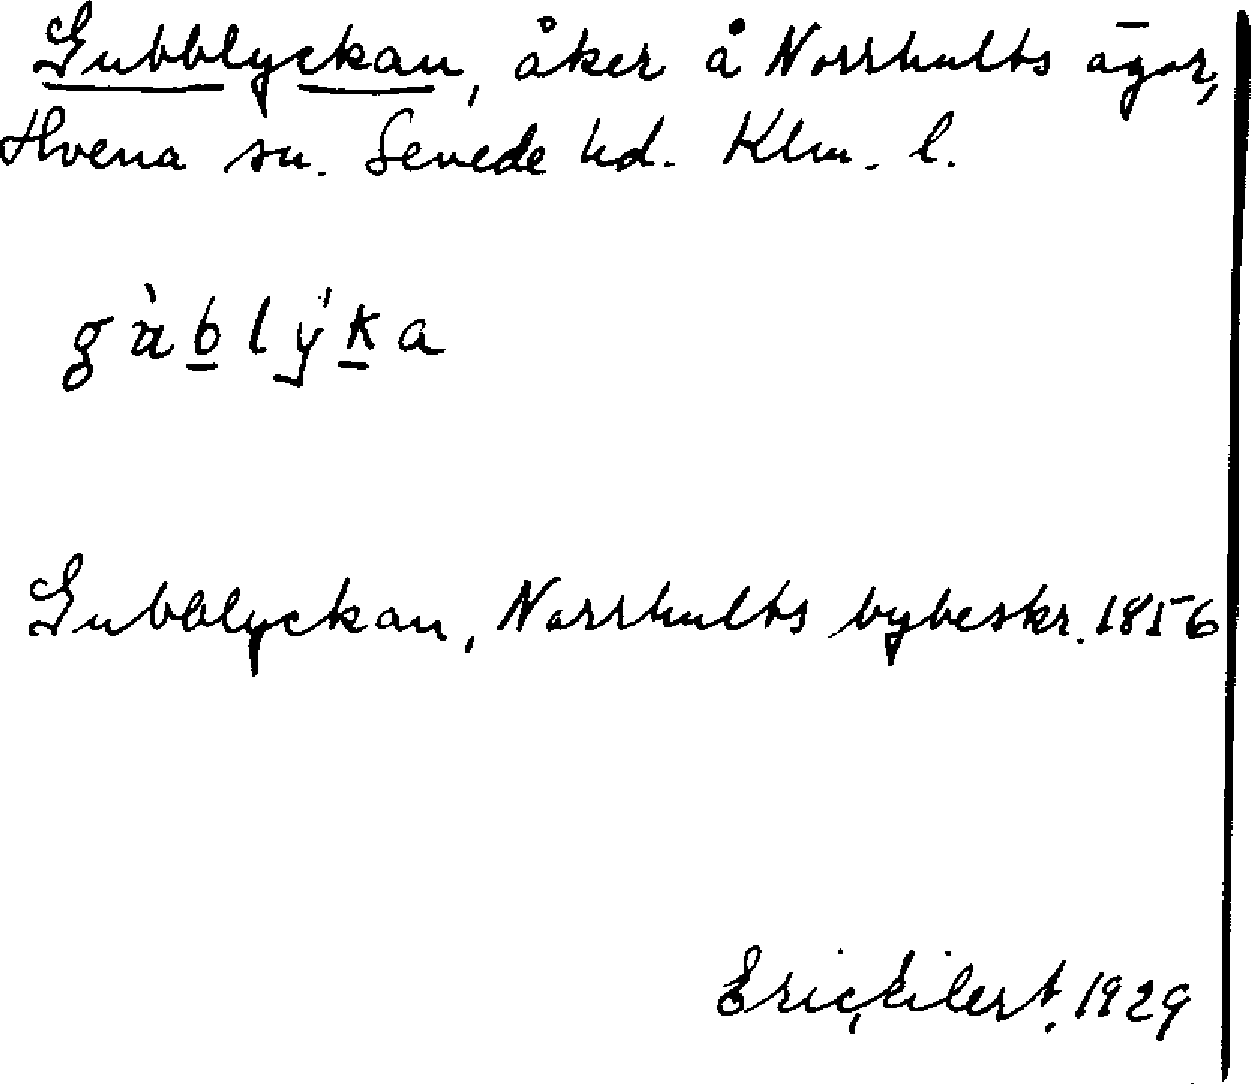 Gubblyckan, åker å Norrhults ägor,
Hvena sn. Sevede hd. Klm. l.
gùblýka
Gubblyckan, Norrhults bybeskr. 1856
Eric Eilert. 1929